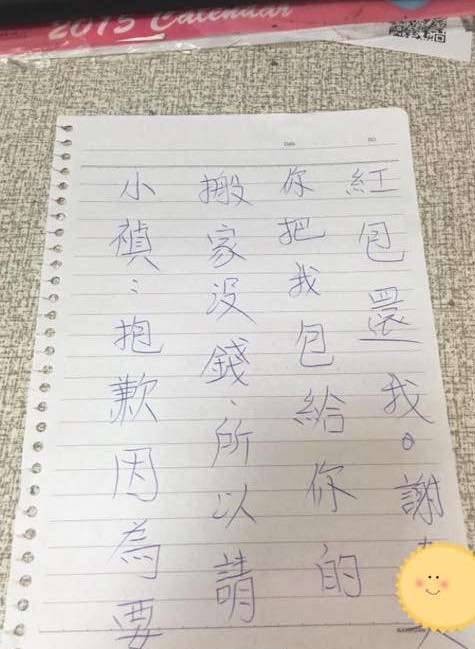 2015 Calendar
Date
NO
小禎：抱歉因為要
搬家没錢、所以請
你把我包給你的
紅包還我。謝